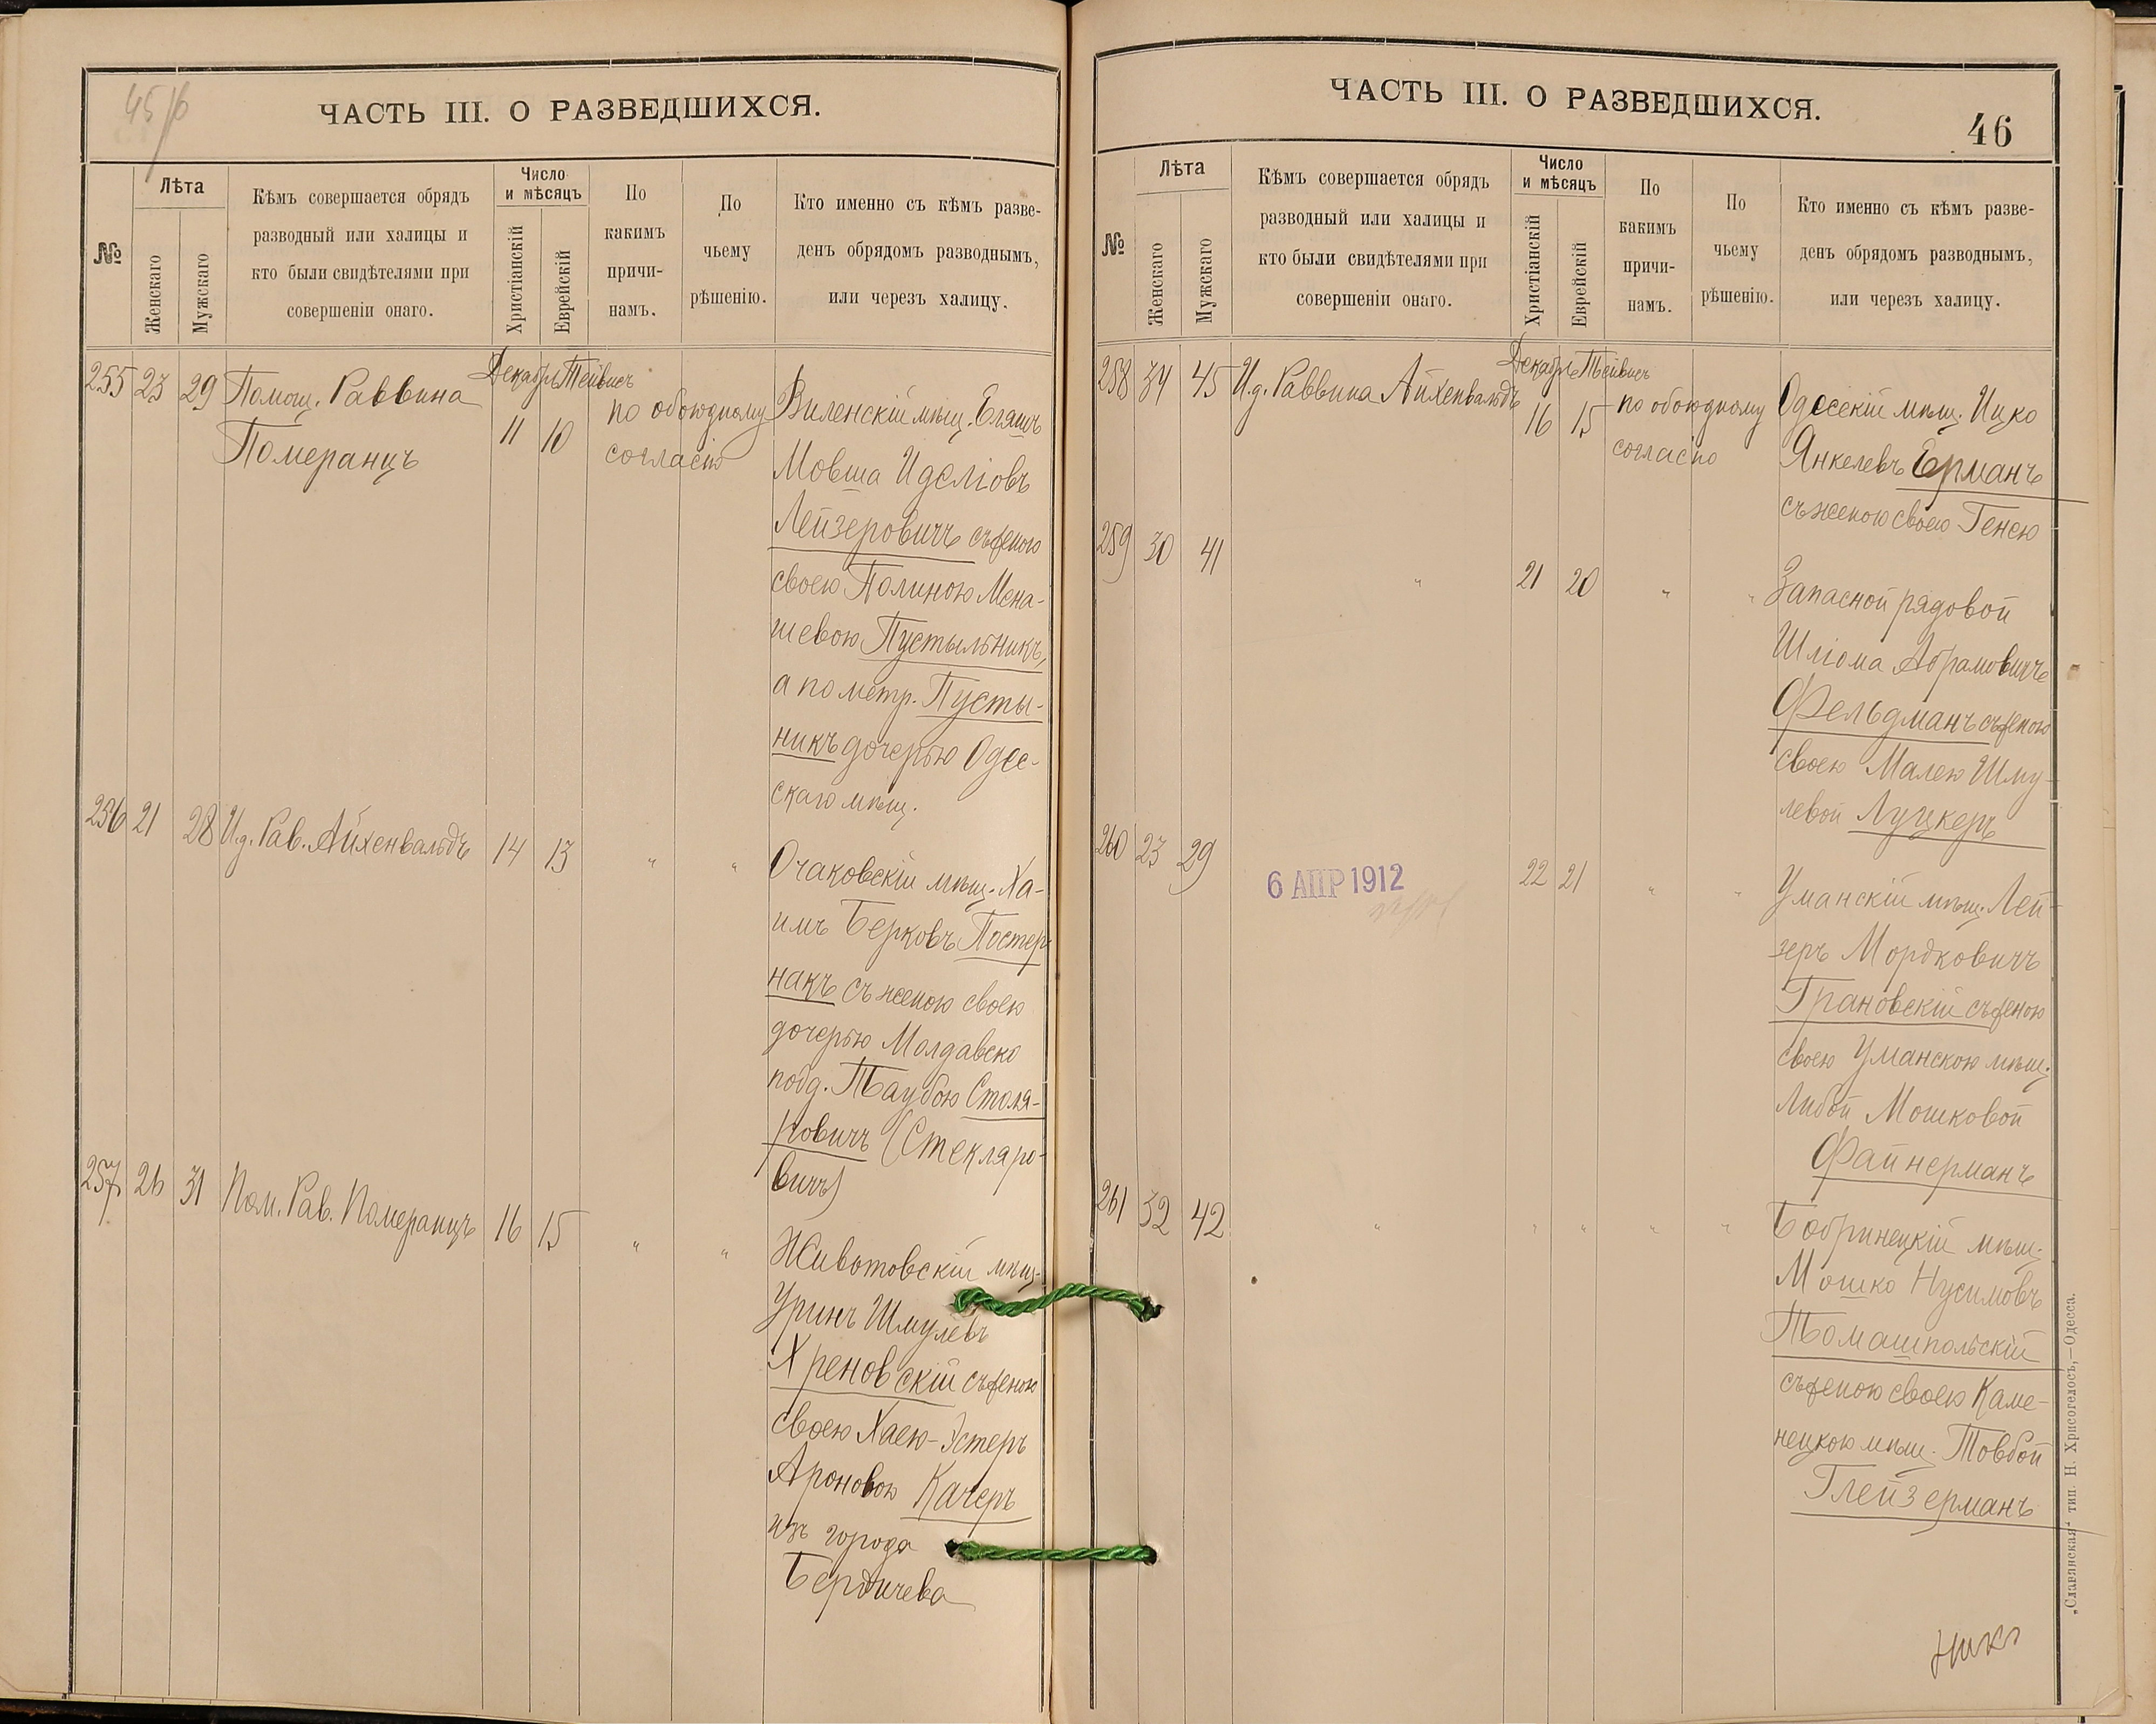 45/б
ЧАСТЬ III. О РАЗВЕДШИХСЯ.
№
Лѣта
Женскаго
Мужскаго
Кѣмъ совершается обрядъ
разводный или халицы и
кто были свидѣтелями при
совершеніи онаго.
Число
и мѣсяцъ
Христіанскій
Еврейскій
По
какимъ
причи-
намъ.
По
чьему
рѣшенію.
Кто именно съ кѣмъ разве-
денъ обрядомъ разводнымъ,
или черезъ халицу.
255 23 29 Помощ. Раввина
Померанцъ
Декабр Тейвисъ
11 10
по обоюдному
согласію
Виленскій мѣщ.
Мовша Иделіовъ
Лейзеровичъ съ женою
своею Полиною Мена-
шевою Пустыльникъ,
а по метр. Пусты-
никъ дочерью Одес-
скаго мѣщ.
256 21 28 И.д. Рав. Айхенвальдъ 14 13 " "
Очаковскій мѣщ. Ха-
имъ Берковъ Постер
накъ съ женою своею
дочерью Молдавско
подд. Таубою Столя-
ровичъ (Стекляро-
вичъ)
257 26 31 Пом. Рав. Померанцъ 16 15 " "
Животовскій мѣщ.
Уринъ Шмулевъ
Хреновскій съ женою
своею Хаею-Эстеръ
Ароновою Качеръ
изъ города
Бердичева
ЧАСТЬ III. О РАЗВЕДШИХСЯ.
46
№
Лѣта
Женскаго
Мужскаго
Кѣмъ совершается обрядъ
разводный или халицы и
кто были свидѣтелями при
совершеніи онаго.
Число
и мѣсяцъ
Христіанскій
Еврейскій
По
какимъ
причи-
намъ.
По
чьему
рѣшенію.
Кто именно съ кѣмъ разве-
денъ обрядомъ разводнымъ,
или черезъ халицу.
258 34 45 И.д. Раввина Айхенвальдъ
Декабр Тейвисъ
16 15
по обоюдному
согласію
Одесскій мѣщ. Ицко
Янкелевъ Ерманъ
съ женою своею Генею
259 30 41 " 21 20 " "
Запасной рядовой
Шліома Абрамовичъ
Фельдманъ съ женою
своею Малею Шму-
левой Луцкеръ
260 23 29
6 АПР 1912
22 21 " "
Уманскій мѣщ. Лей-
зеръ Мордковичъ
Грановскій съ женою
своею Уманскою мѣщ.
Либой Мошковой
Файнерманъ
261 32 42 " " " " "
Бобринецкій мѣщ.
Мошко Нусимовъ
Томашпольскій
съ женою своею Каме-
нецкою мѣщ. Товбой
Глейзерманъ
„Славянская“ тип. Н. Хрисогелосъ,—Одесса.